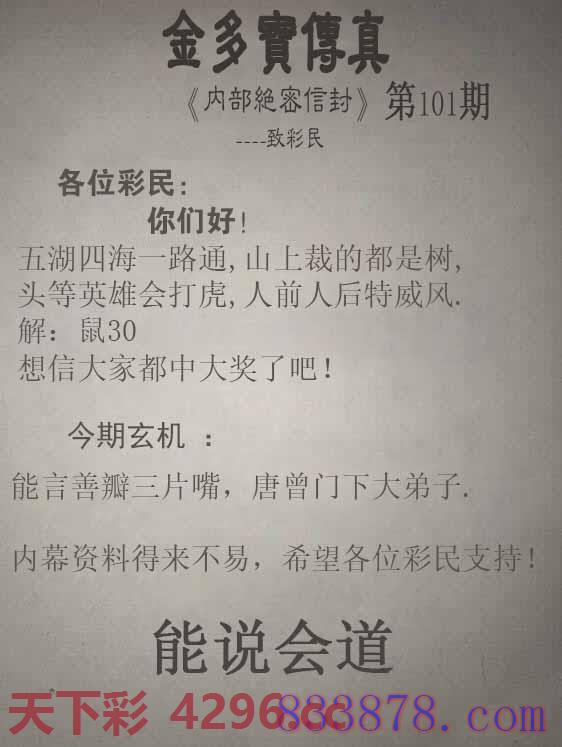 金多寶傳真
《内部絶密信封》第101期
----致彩民
各位彩民:
你们好!
五湖四海一路通,山上裁的都是树,
头等英雄会打虎,人前人后特威风.
解: 鼠30
想信大家都中大奖了吧!
今期玄机 :
能言善瓣三片嘴, 唐曾门下大弟子.
内幕资料得来不易, 希望各位彩民支持!
能说会道
天下彩 4296.cc
883878.com